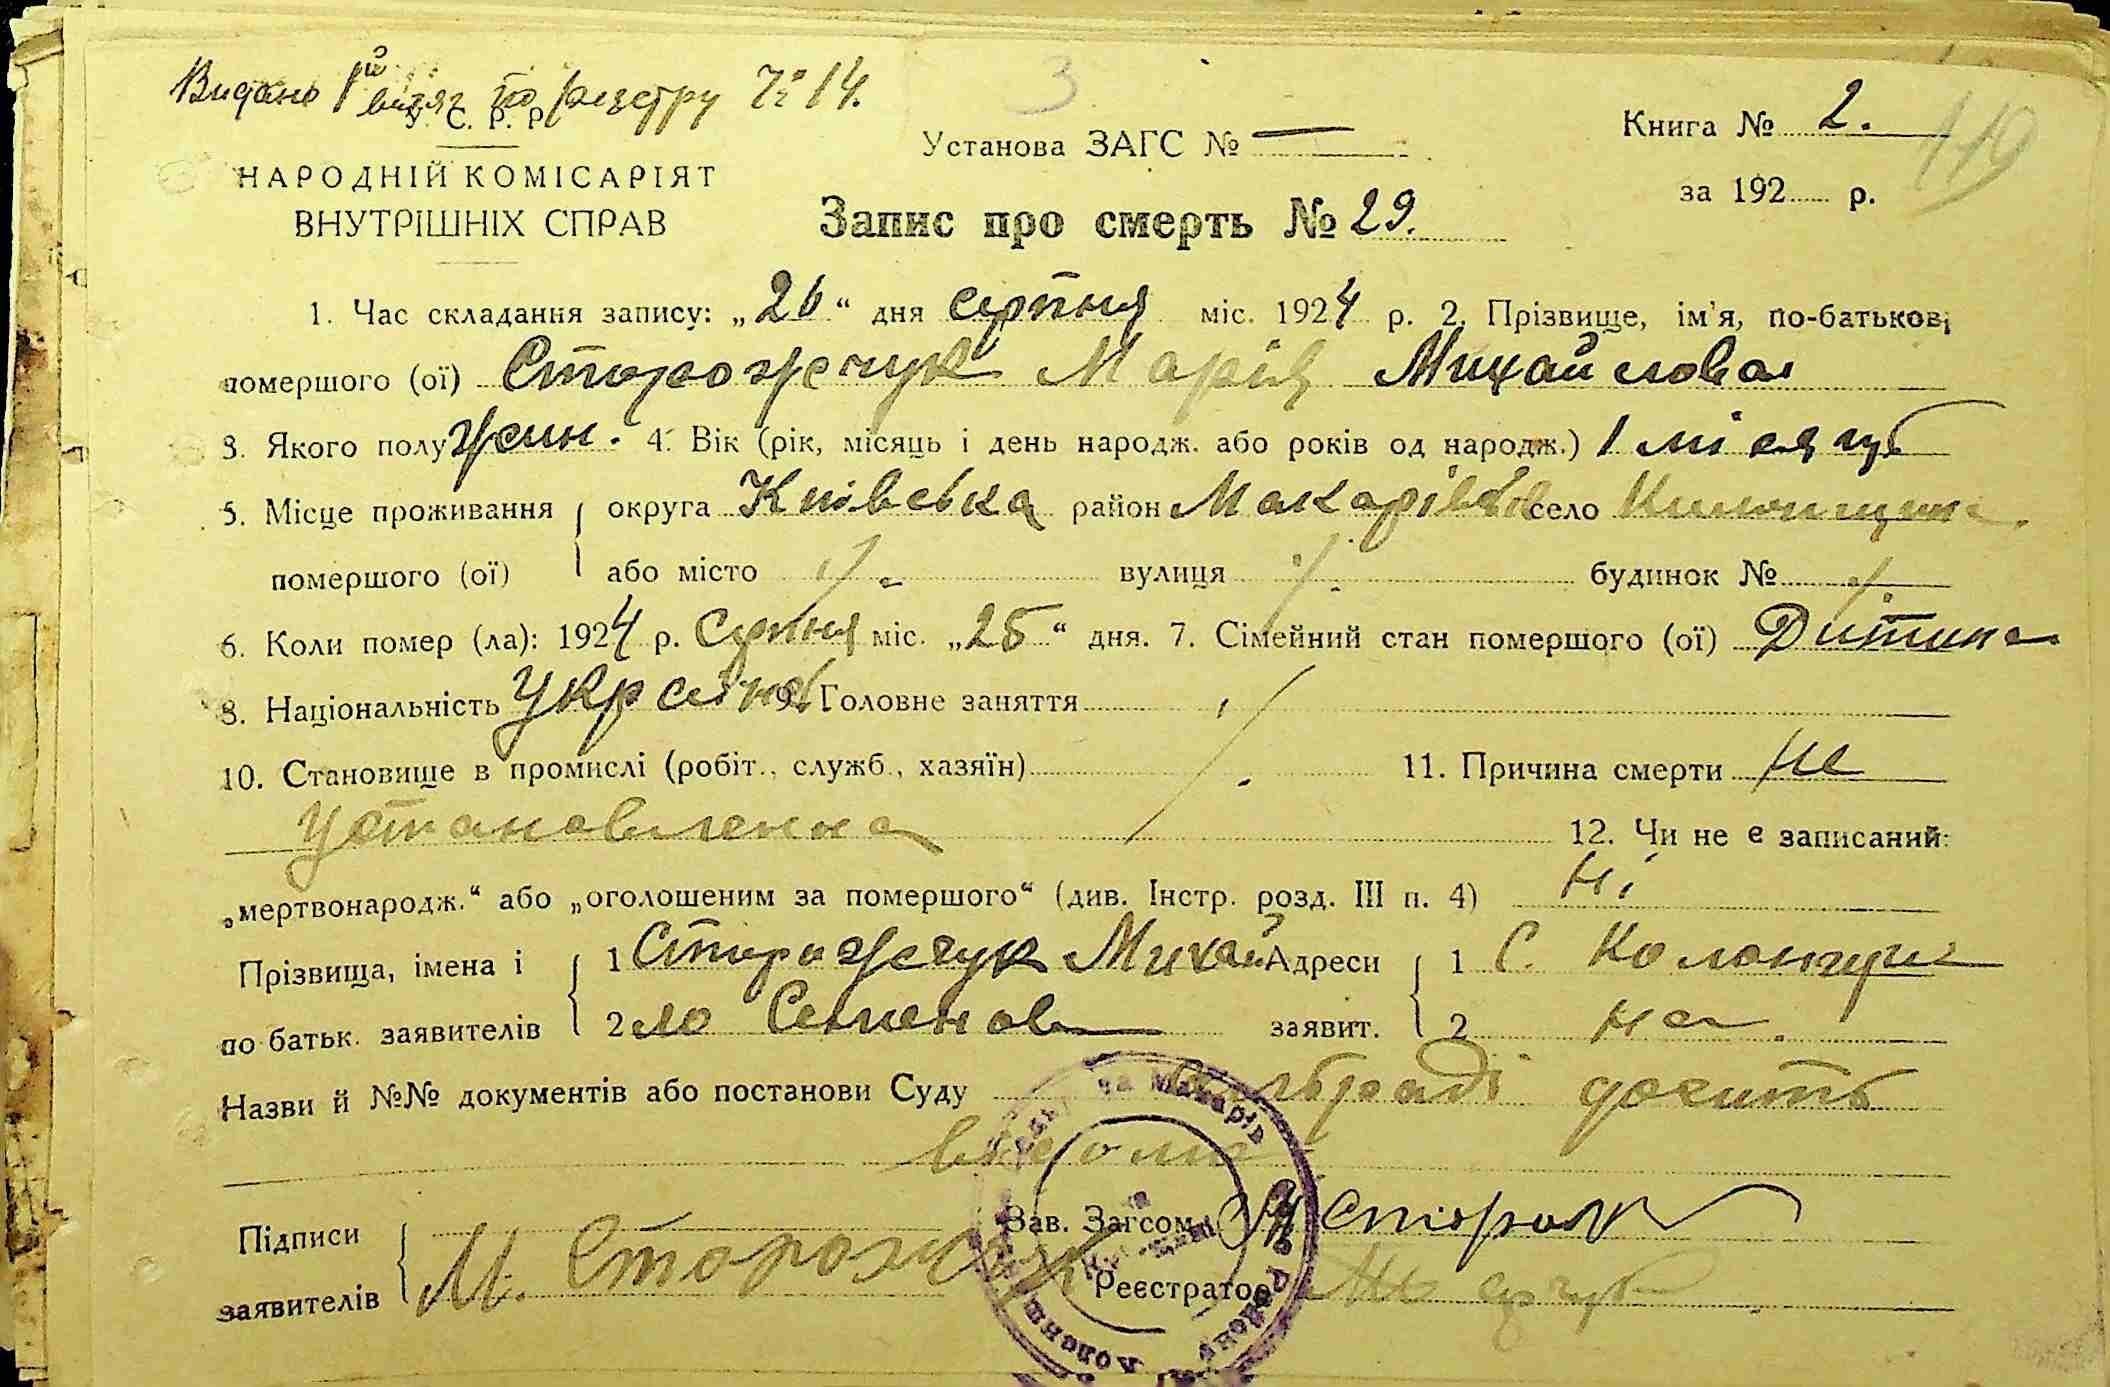 Видано 1й витяг по реєстру № 14.
3
У. С. Р. Р.
Установа ЗАГС № —
Книга № 2.
119
НАРОДНІЙ КОМІСАРІЯТ
ВНУТРІШНІХ СПРАВ
за 192 р.
Запис про смерть № 29.
1. Час складання запису: „26“ дня серпня міс. 1924 р. 2. Прізвище, ім'я, по-батькові
помершого (ої) Сторожчук Марія Михайлова
3. Якого полу жін. 4. Вік (рік, місяць і день народж. або років од народж.) 1 місяць
5. Місце проживання округа Київська район Макарівськ село
помершого (ої) або місто вулиця будинок №
6. Коли помер (ла): 1924 р. Серпня міс. „25“ дня. 7. Сімейний стан помершого (ої) Дитина
8. Національність Україн. 9. Головне заняття
10. Становище в промислі (робіт., служб., хазяїн) 11. Причина смерти Не
установленна
12. Чи не є записаний:
„мертвонародж.“ або „оголошеним за помершого“ (див. Інстр. розд. III п. 4) Ні
Прізвища, імена і 1 Сторожчук Михай Адреси 1 С. Колонщи
по батьк. заявителів 2 ло Семенов заявит. 2 на.
Назви й №№ документів або постанови Суду сільраді досить
відома
Підписи
заявителів
М. Сторожчук
Зав. Загсом
Реєстратор